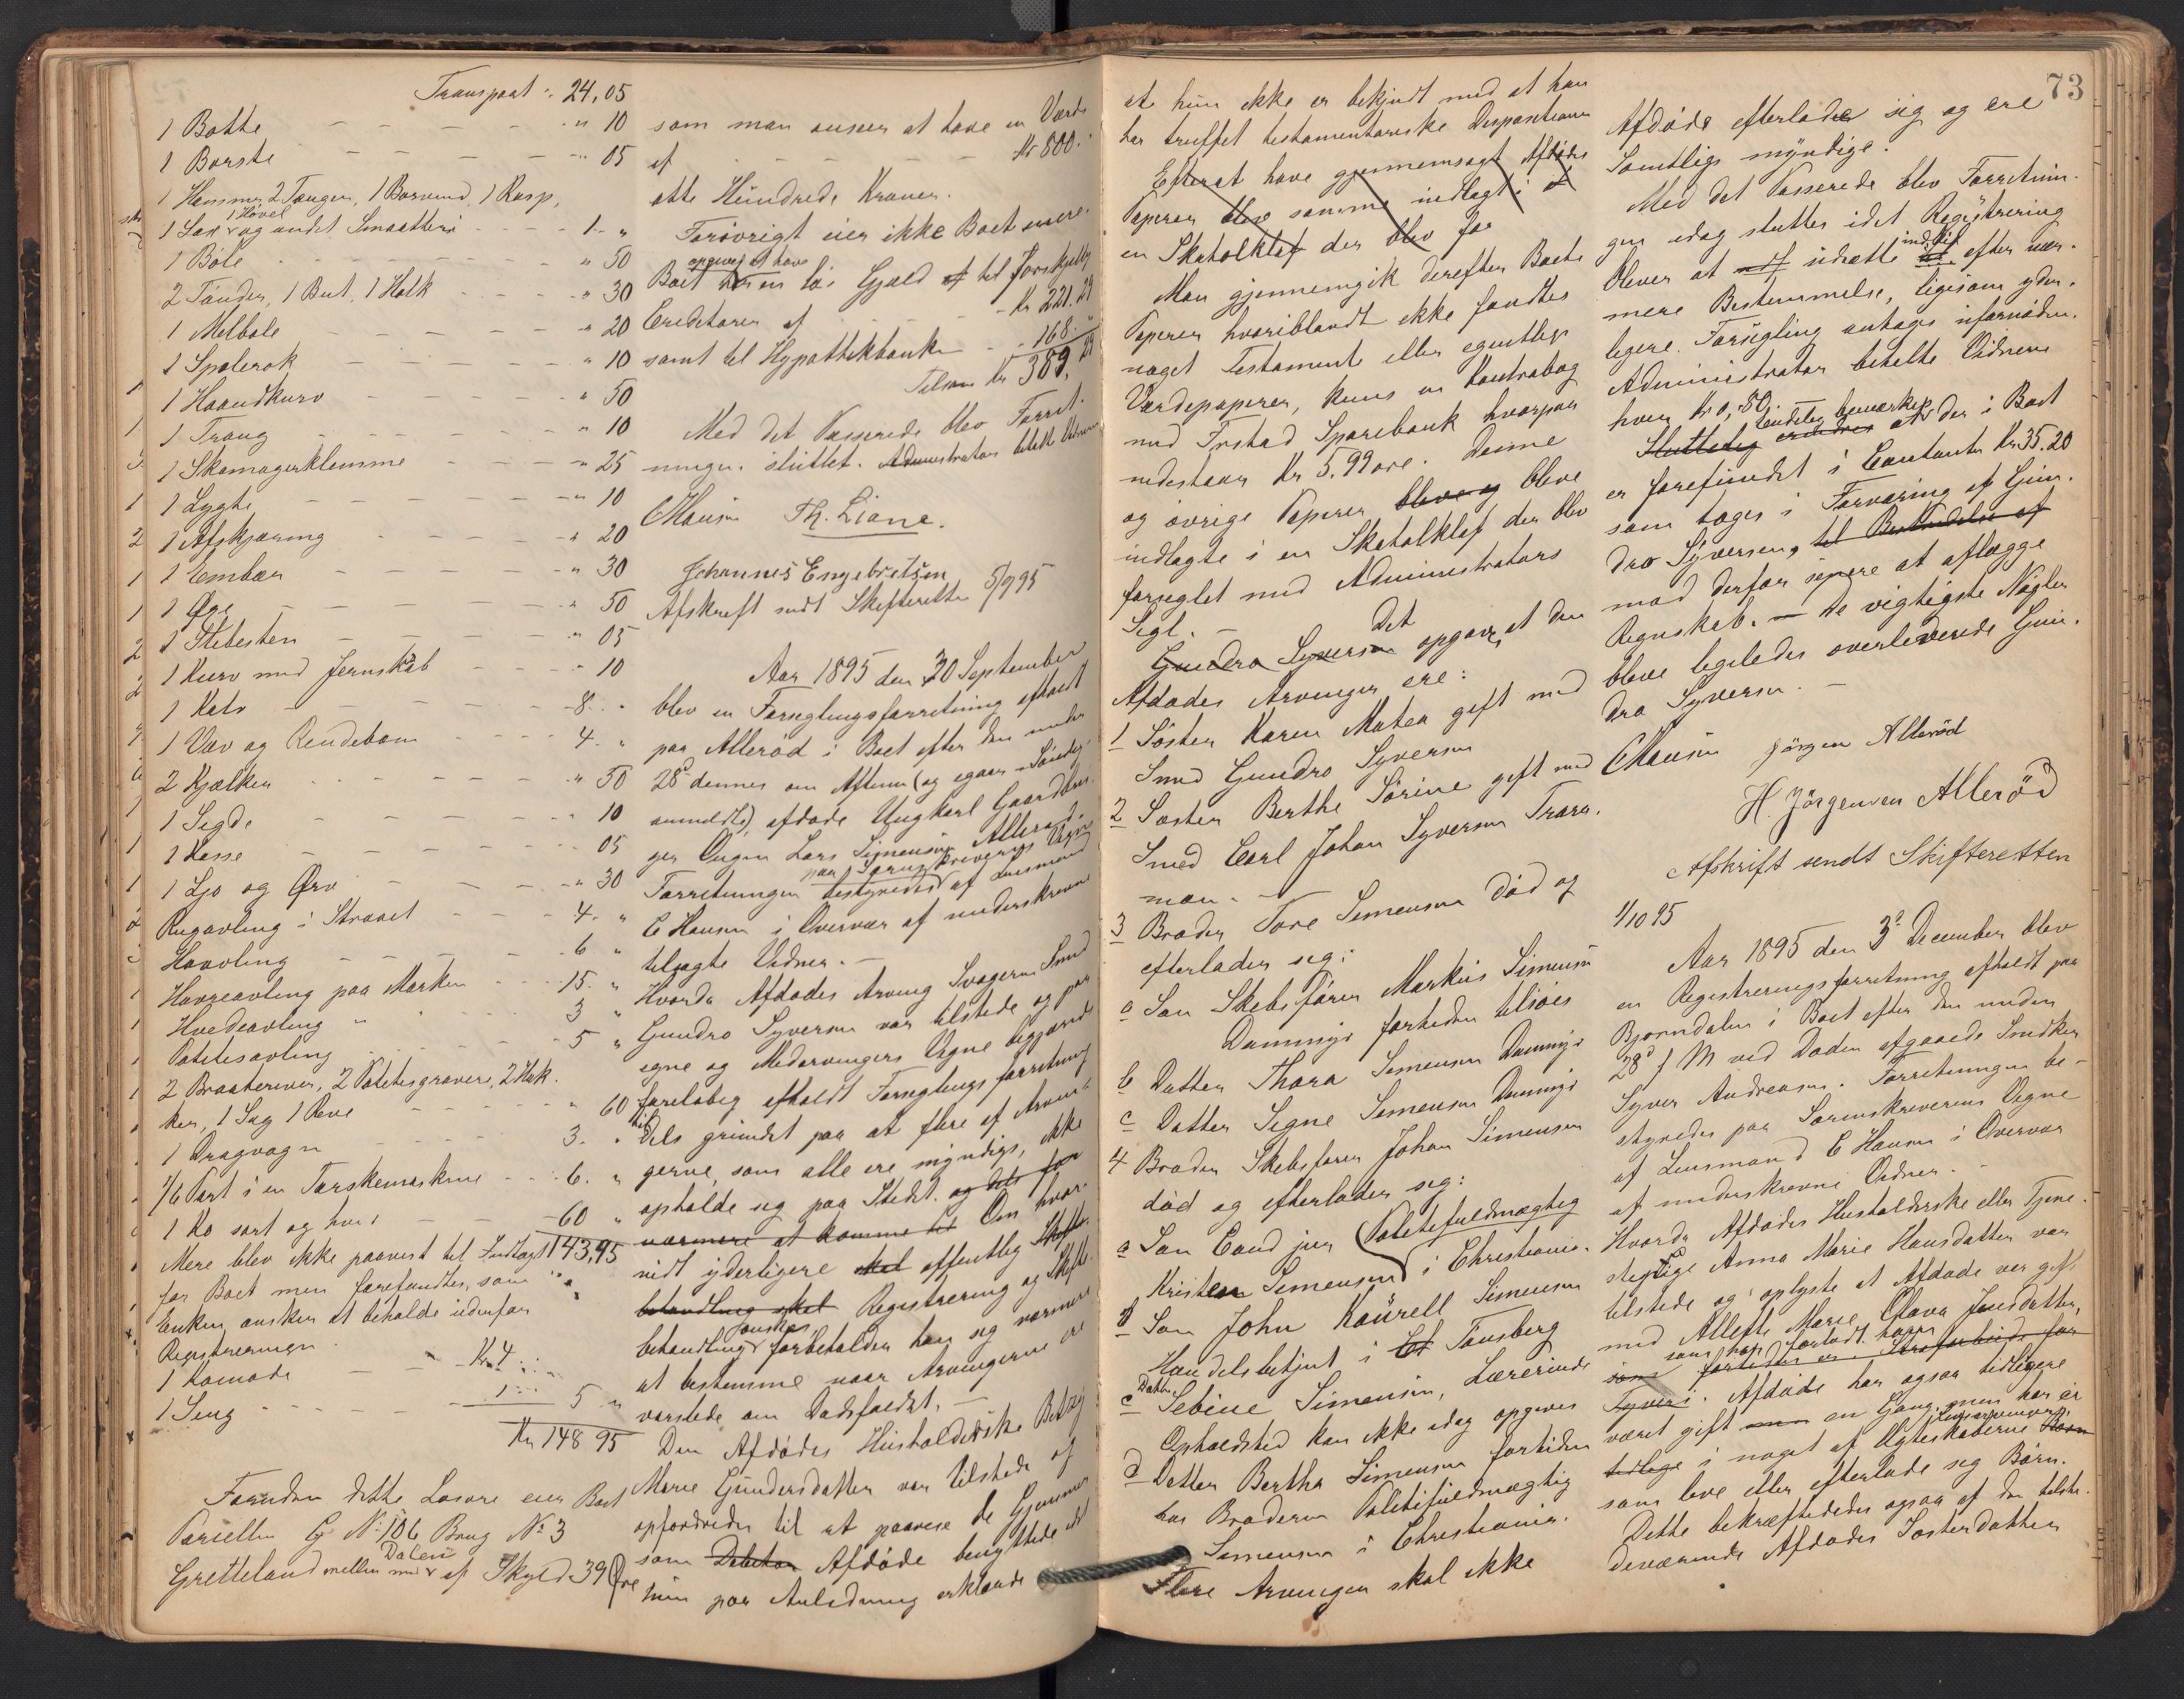 Transport :. 24,05
1 Bøtte - - - - " 10
1 Børste - - - - " 05
1 Hammer, 2 Tænger, 1 Borvend, 1 Rasp,
1 Høvel
1 Sax og andet Smaatteri - - 1. "
1 Bøle - - - - " 50
2 Tønder, 1 But, 1 Holk - - " 30
1 Melbøle - - - - " 20
1 Spolerok - - - - " 10
1 Haandkurv - - - " 50
1 Traug - - - - " 10
1 Skomagerklemme - - " 25
1 Lygte - - - - " 10
1 Afskjæring - - - " 20
1 Embær - - - - " 30
1 Øxe - - - - " 50
1 Slibesten - - - " 05
1 Kurv med Jernskab - - " 10
1 Kalv - - - - 8. "
1 Væv og Rendebom - - 4. "
2 Kjælker - - - - " 50
1 Segde - - - - " 10
1 Kasse - - - - " 05
1 Ljo og Orv - - - " 30
Rugavling i Straaet - - 4. "
Høavling - - - - 6 "
Havreavling paa Marken - - 15. "
Hvedeavling " - - 3 "
Potetesavling - - - 5 "
2 Braateriver, 2 Potetesgravere, 2 Hak-
ker, 1 Sag 1 Rive - - " 60
1 Dragvogn - - - 3. "
1/6 Part i en Tærskemaskine - - 6. "
1 Ko sort og hvid - - 60 "
Mere blev ikke paavist til Indtægt 143,95
for Boet men forefandtes, som
Enken ønsker at beholde udenfor
Registreringen.
1 Komode - - Kr. 4 "
1 Seng - - - 1 " 5 "
Kr 148 95
Foruden dette Løsøre eier Boet
Parcellen G. No 106 Brug No 3
Dalen
Gretteland mellem med af Skyld 39 Øre
som man anseer at have en Værdi
af - - - - Kr 800.
otte Hundrede Kroner.
Forøvrigt eier ikke Boet mere.
opgives at have
Boet er en løs Gjæld af til forskjellige
Creditorer af - - - Kr 221.29
samt til Hypothekbanken - - 168. "
Tilsam Kr 389,29
Med det Passerede blev Forret-
ningen sluttet. Administrator betalte Vidnerne
CHansen Th. Liane.
Johannes Engebretsen
Afskrift sendt Skifteretten 5/9 95
Aar 1895 den 30 September
blev en Forseglingsforretning afholdt
paa Allerød i Boet efter den under
28d dennes om Aftenen (og igaar Søndag
anmeldte) afdøde Ungkarl Gaardbru-
ger Ougen Lars Simensen Allerød.
paa Sorenskriverens Vegne
Forretningen bestyredes af Lensmand
C Hansen i Overvær af underskrevne
tilsagte Vidner. -
Hvorda Afdødes Arving Svogeren Smed
Gundro Syversen var tilstede og paa
egne og Medarvingers Vegne begjærede
foreløbig afholdt Forseglingsforretning
dels grundet paa at flere af Arvin-
gerne, som alle ere myndige, ikke
opholde sig paa Stedet. og dels for
nærmere at komme til Om hvor-
vidt yderligere skal offentlig Skifte-
behandling skal Registrering og Skifte-
ønskes
behandling forbeholder han sig nærmere
at bestemme naar Arvingerne ere
varslede om Dødsfaldet. -
Den Afdødes Husholderske Betzy
Marie Gundersdatter var tilstede og
opfordredes til at paavise de Gjemmer
som Debitor Afdøde benyttede
hun paa Anledning erklærede
73
at hun ikke er bekjendt med at han
har truffet testamentariske Dispositioner
Efter at have gjennemsøgt Afdødes
Papirer blev samme indlagt i et
en Skatolklaf der blev for
Man gjennemgik derefter Boets
Papirer hvoriblandt ikke fandtes
noget Testament eller egentlige
Værdipapirer, kun en Kontrabog
med Frstad Sparebank hvorpaa
indestaar Kr 5.99 øre. Denne
og øvrige Papirer bleve og bleve
indlagte i en Skatolklaf der blev
forseglet med Administrators
Segl. -
Det
Gundro Syversen opgaves at den
Afdødes Arvinger ere:
1 Søster Karen Matea gift med
Smed Gundro Syversen
2 Søster Berthe Sørine gift med
Smed Carl Johan Syversen Trara.
man. -
3 Broder Tore Simensen død og
efterlader seg:
a Søn Skibsfører Markus Simensen
Dammyr fortiden tilsjøs
b Datter Thora Simensen Dammyr
c Datter Signe Simensen Dammyr
4 Broder Skibsfører Johan Simensen
død og efterlader seg:
a Søn Cand jur Politifuldmægtig
Kristen Simensen i Christiania.
b Søn John Kaurell Simensen
Handelsbetjent i Ct Tønsberg
Datter
c Sebine Simensen, Lærerinde
Opholdsted kan ikke idag opgives
d Datter Bertha Simensen fortiden
hos Broderen Politifuldmægtig
Simensen i Christiania.
Flere Arvinger skal ikke
Afdøde efterlader sig og ere
Samtlige myndige.
Med det Passerede blev Forretnin-
gen idag sluttet idet Registrering
indtil
bliver at udsætte til efter nær-
mere Bestemmelse, ligesom yder-
ligere Forsegling antages ufornøden.
Administrator betalte Vidnerne
hver Kr 0,50. -
Endelig bemærkes
Sluttelig erindres at der i Boet
er forefundet i Contanter Kr 35.20
som tages i Forvaring af Gun-
dro Syversen, til Bestridelse af
mod derfor senere at aflægge
Regnskab. - De vigtigste Nøgler
bleve ligeledes overleverede Gun-
dro Syversen. -
CHansen Jørgen Allerød
H. Jørgensen Allerød
Afskrift sendt Skifteretten
1/10 95
Aar 1895 den 3d December blev
en Registreringsforretning afholdt paa
Bjørndalen i Boet efter den under
28d f M ved Døden afgaaede Snedker
Syver Andreasen. Forretningen be-
styredes paa Sorenskriverens Vegne
af Lensmand C Hansen i Overvær
af underskrevne Vidner. -
Hvorda Afdødes Husholderske eller Tjene-
stepige Anna Marie Hansdatter var
tilstede og oplyste at Afdøde var gift
med Allette Marie Olava Jensdatter,
som han forladt
som fortiden er i Strafarbeide for
Tyveri. Afdøde har ogsaa tidligere
været gift men en Gang, men har ei
Livsarvinger
tidlige i noget af Ægteskaberne Børn
som leve eller efterlade seg Børn.
Dette bekræftedes ogsaa af den tilste-
deværende Afdødes Søsterdatter